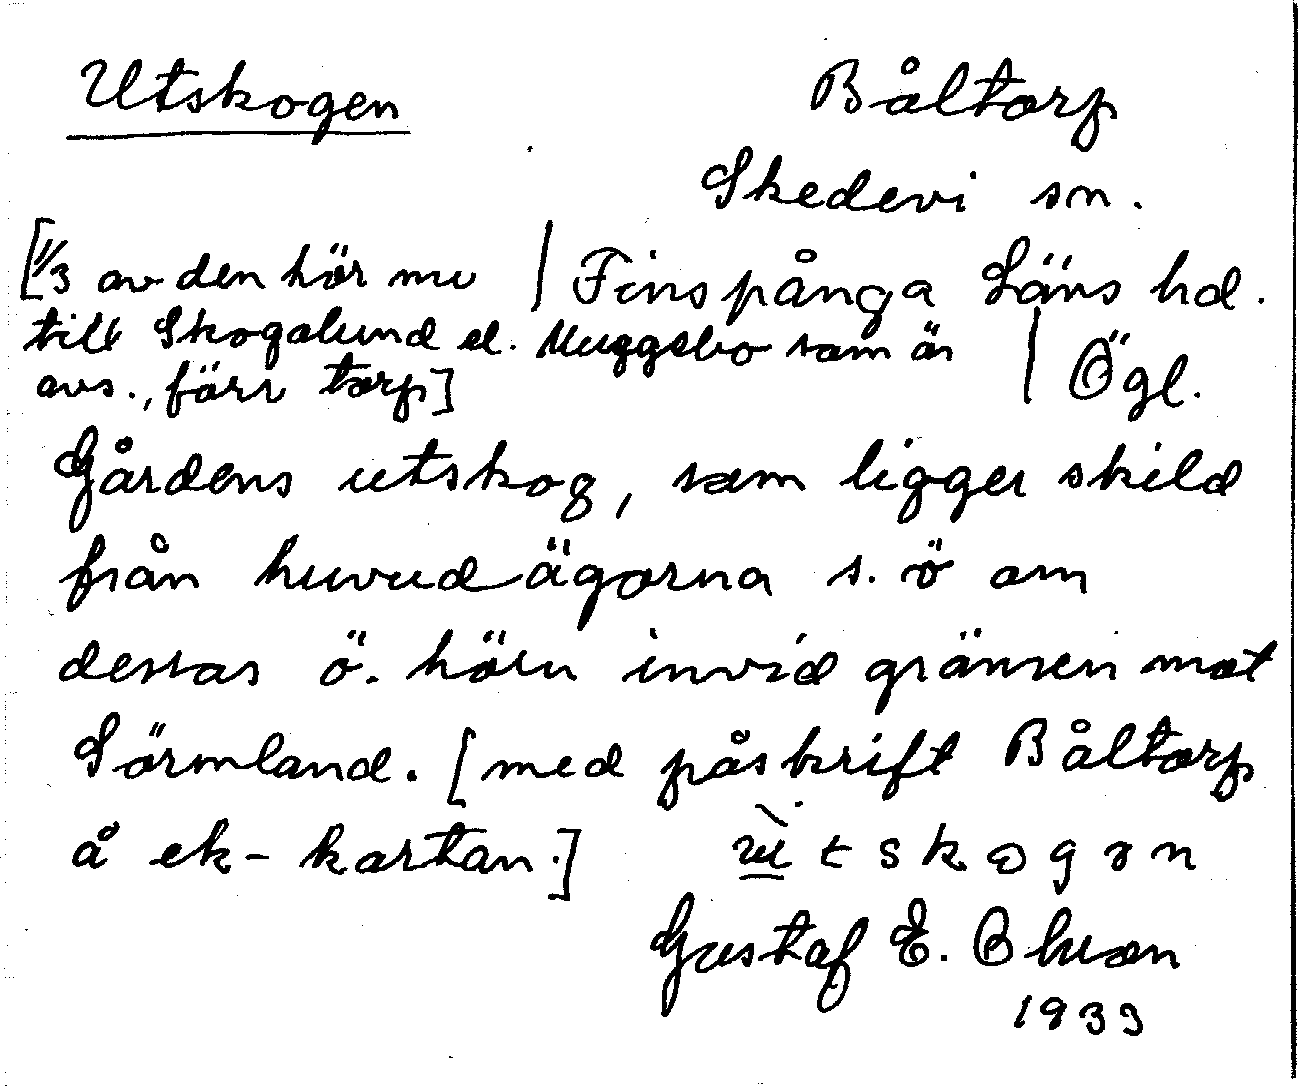 Utskogen
Båltorp
Skedevi sn.
Finspånga Läns hd.
Ögl.
[1/3 av den hör nu
till Skogalund el. Muggebo som är
avs., förr torp]
Gårdens utskog, som ligger skild
från huvudägorna s. ö om
dessas ö. hörn invid gränsen mot
Sörmland. [med påskrift Båltorp
å ek-kartan.]
Gustaf E. Ohlson
1933